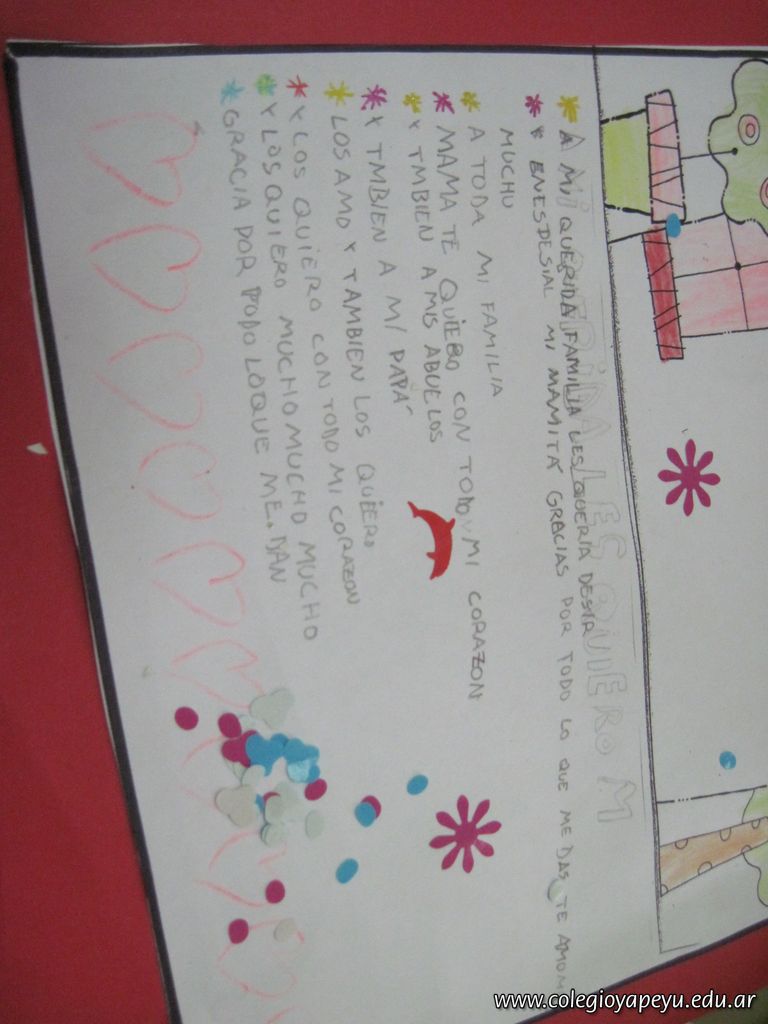 A MI QUERIDA FAMILIA LES QUERIA DESIR
Y ENESDESIAL MI MAMITA GRACIAS POR TODO LO QUE ME DAS TE AMOM
MUCHU
A TODA MI FAMILIA
MAMA TE QUIERO CON TODO MI CORAZON
Y TMBIEN A MIS ABUELOS
Y TMBIEN A MI PAPÁ
LOS AMO Y TAMBIEN LOS QUIERO
Y LOS QUIERO CON TODO MI CORAZON
Y LOS QUIERO MUCHO MUCHO MUCHO
GRACIA POR TODO LO QUE ME. DAN
www.colegioyapeyu.edu.ar